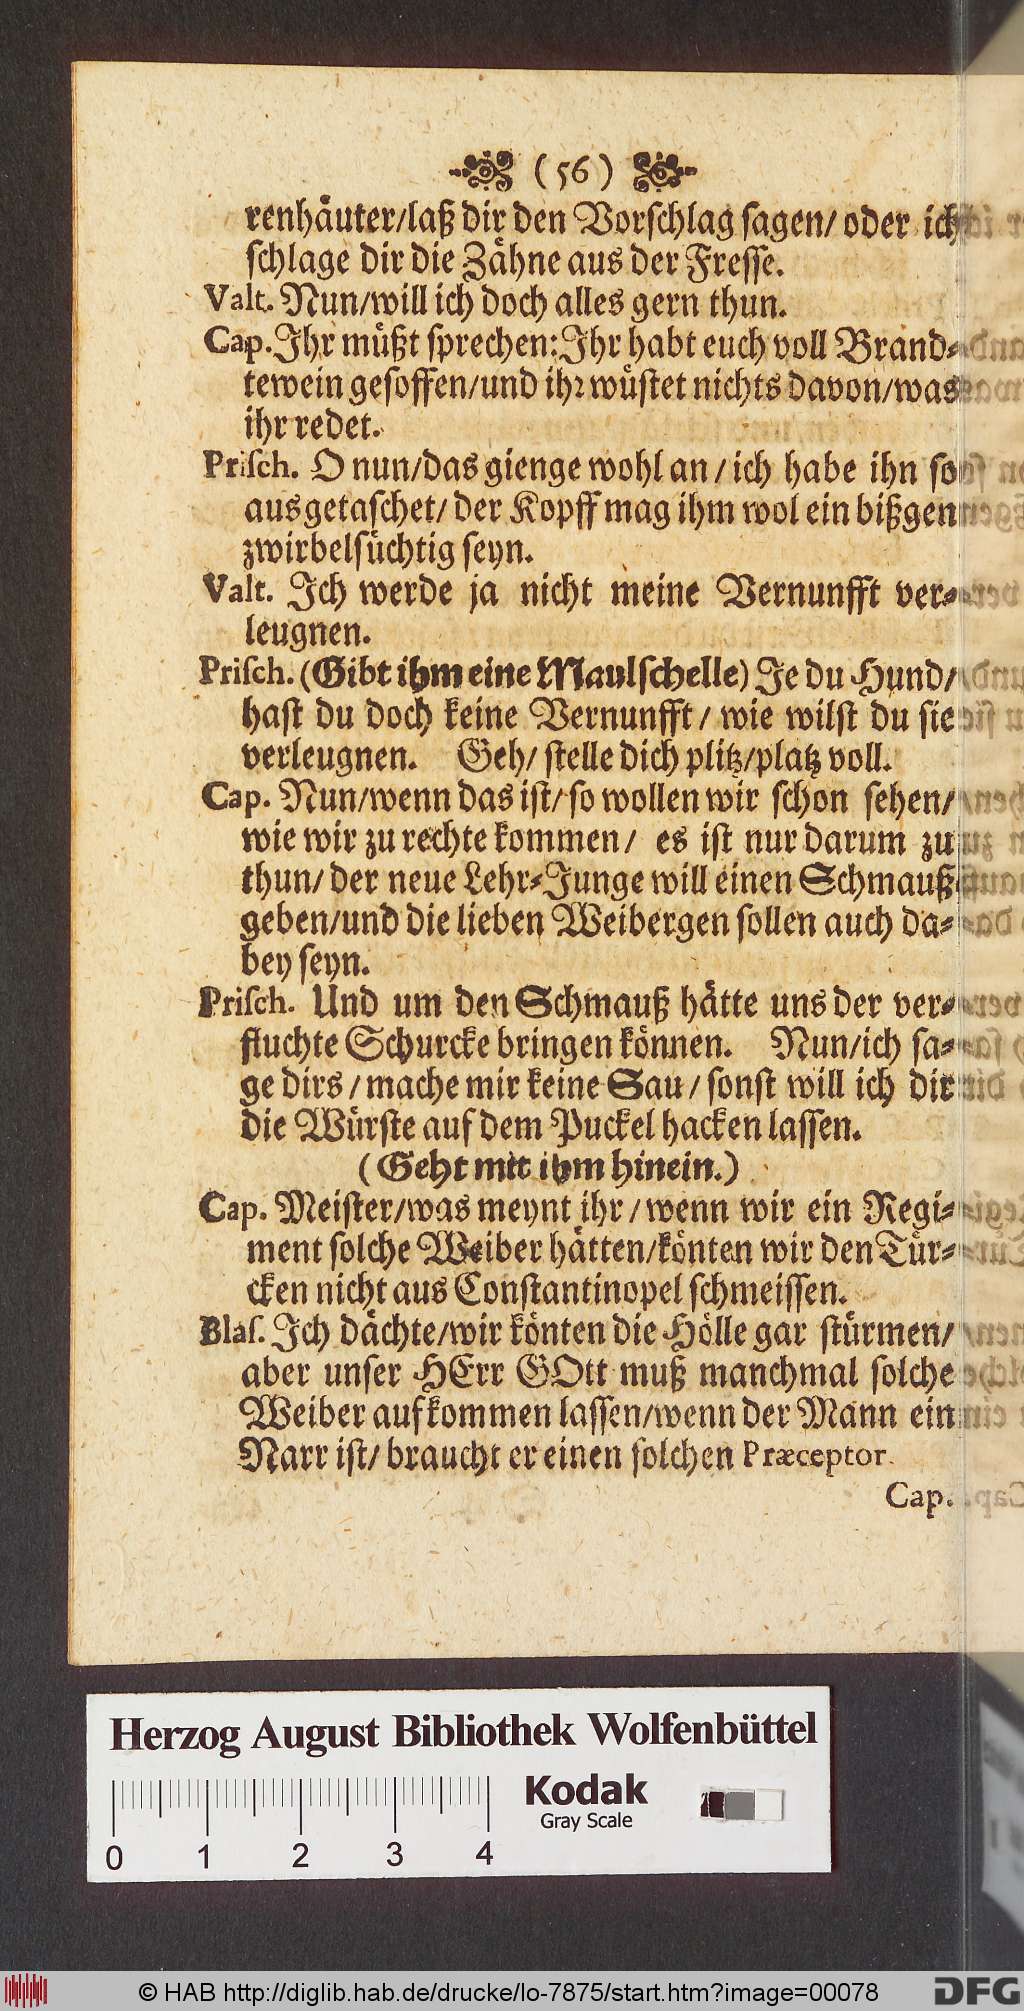 (56)
renhäuter/laß dir den Vorschlag sagen/ oder ich
schlage dir die Zähne aus der Fresse.
Valt. Nun/will ich doch alles gern thun.
Cap. Ihr müßt sprechen: Ihr habt euch voll Brand-
tewein gesoffen/und ihr wüstet nichts davon/was
ihr redet.
Prisch. O nun/das gienge wohl an / ich habe ihn so
ausgetaschet/ der Kopff mag ihm wol ein bißgen
zwirbelsüchtig seyn.
Valt. Ich werde ja nicht meine Vernunfft ver-
leugnen.
Prisch. (Gibt ihm eine Maulschelle) Je du Hund/
hast du doch keine Vernunfft / wie wilst du sie
verleugnen. Geh/ stelle dich plitz/platz voll.
Cap. Nun/wenn das ist/ so wollen wir schon sehen/
wie wir zu rechte kommen/ es ist nur darum zu
thun/ der neue Lehr-Junge will einen Schmauß
geben/und die lieben Weibergen sollen auch da-
bey seyn.
Prisch. Und um den Schmauß hätte uns der ver-
fluchte Schurcke bringen können. Nun/ich sa-
ge dirs / mache mir keine Sau / sonst will ich dir
die Würste auf dem Puckel hacken lassen.
(Geht mit ihm hinein.)
Cap. Meister/was meynt ihr / wenn wir ein Regi-
ment solche Weiber hätten/könten wir den Tür-
cken nicht aus Constantinopel schmeissen.
Blas. Ich dächte/wir könten die Hölle gar stürmen/
aber unser HErr GOtt muß manchmal solche
Weiber aufkommen lassen/wenn der Mann ein
Narr ist/ braucht er einen solchen Præceptor.
Cap.
Herzog August Bibliothek Wolfenbüttel
Kodak
Gray Scale
0 1 2 3 4
© HAB http://diglib.hab.de/drucke/lo-7875/start.htm?image=00078
DFG